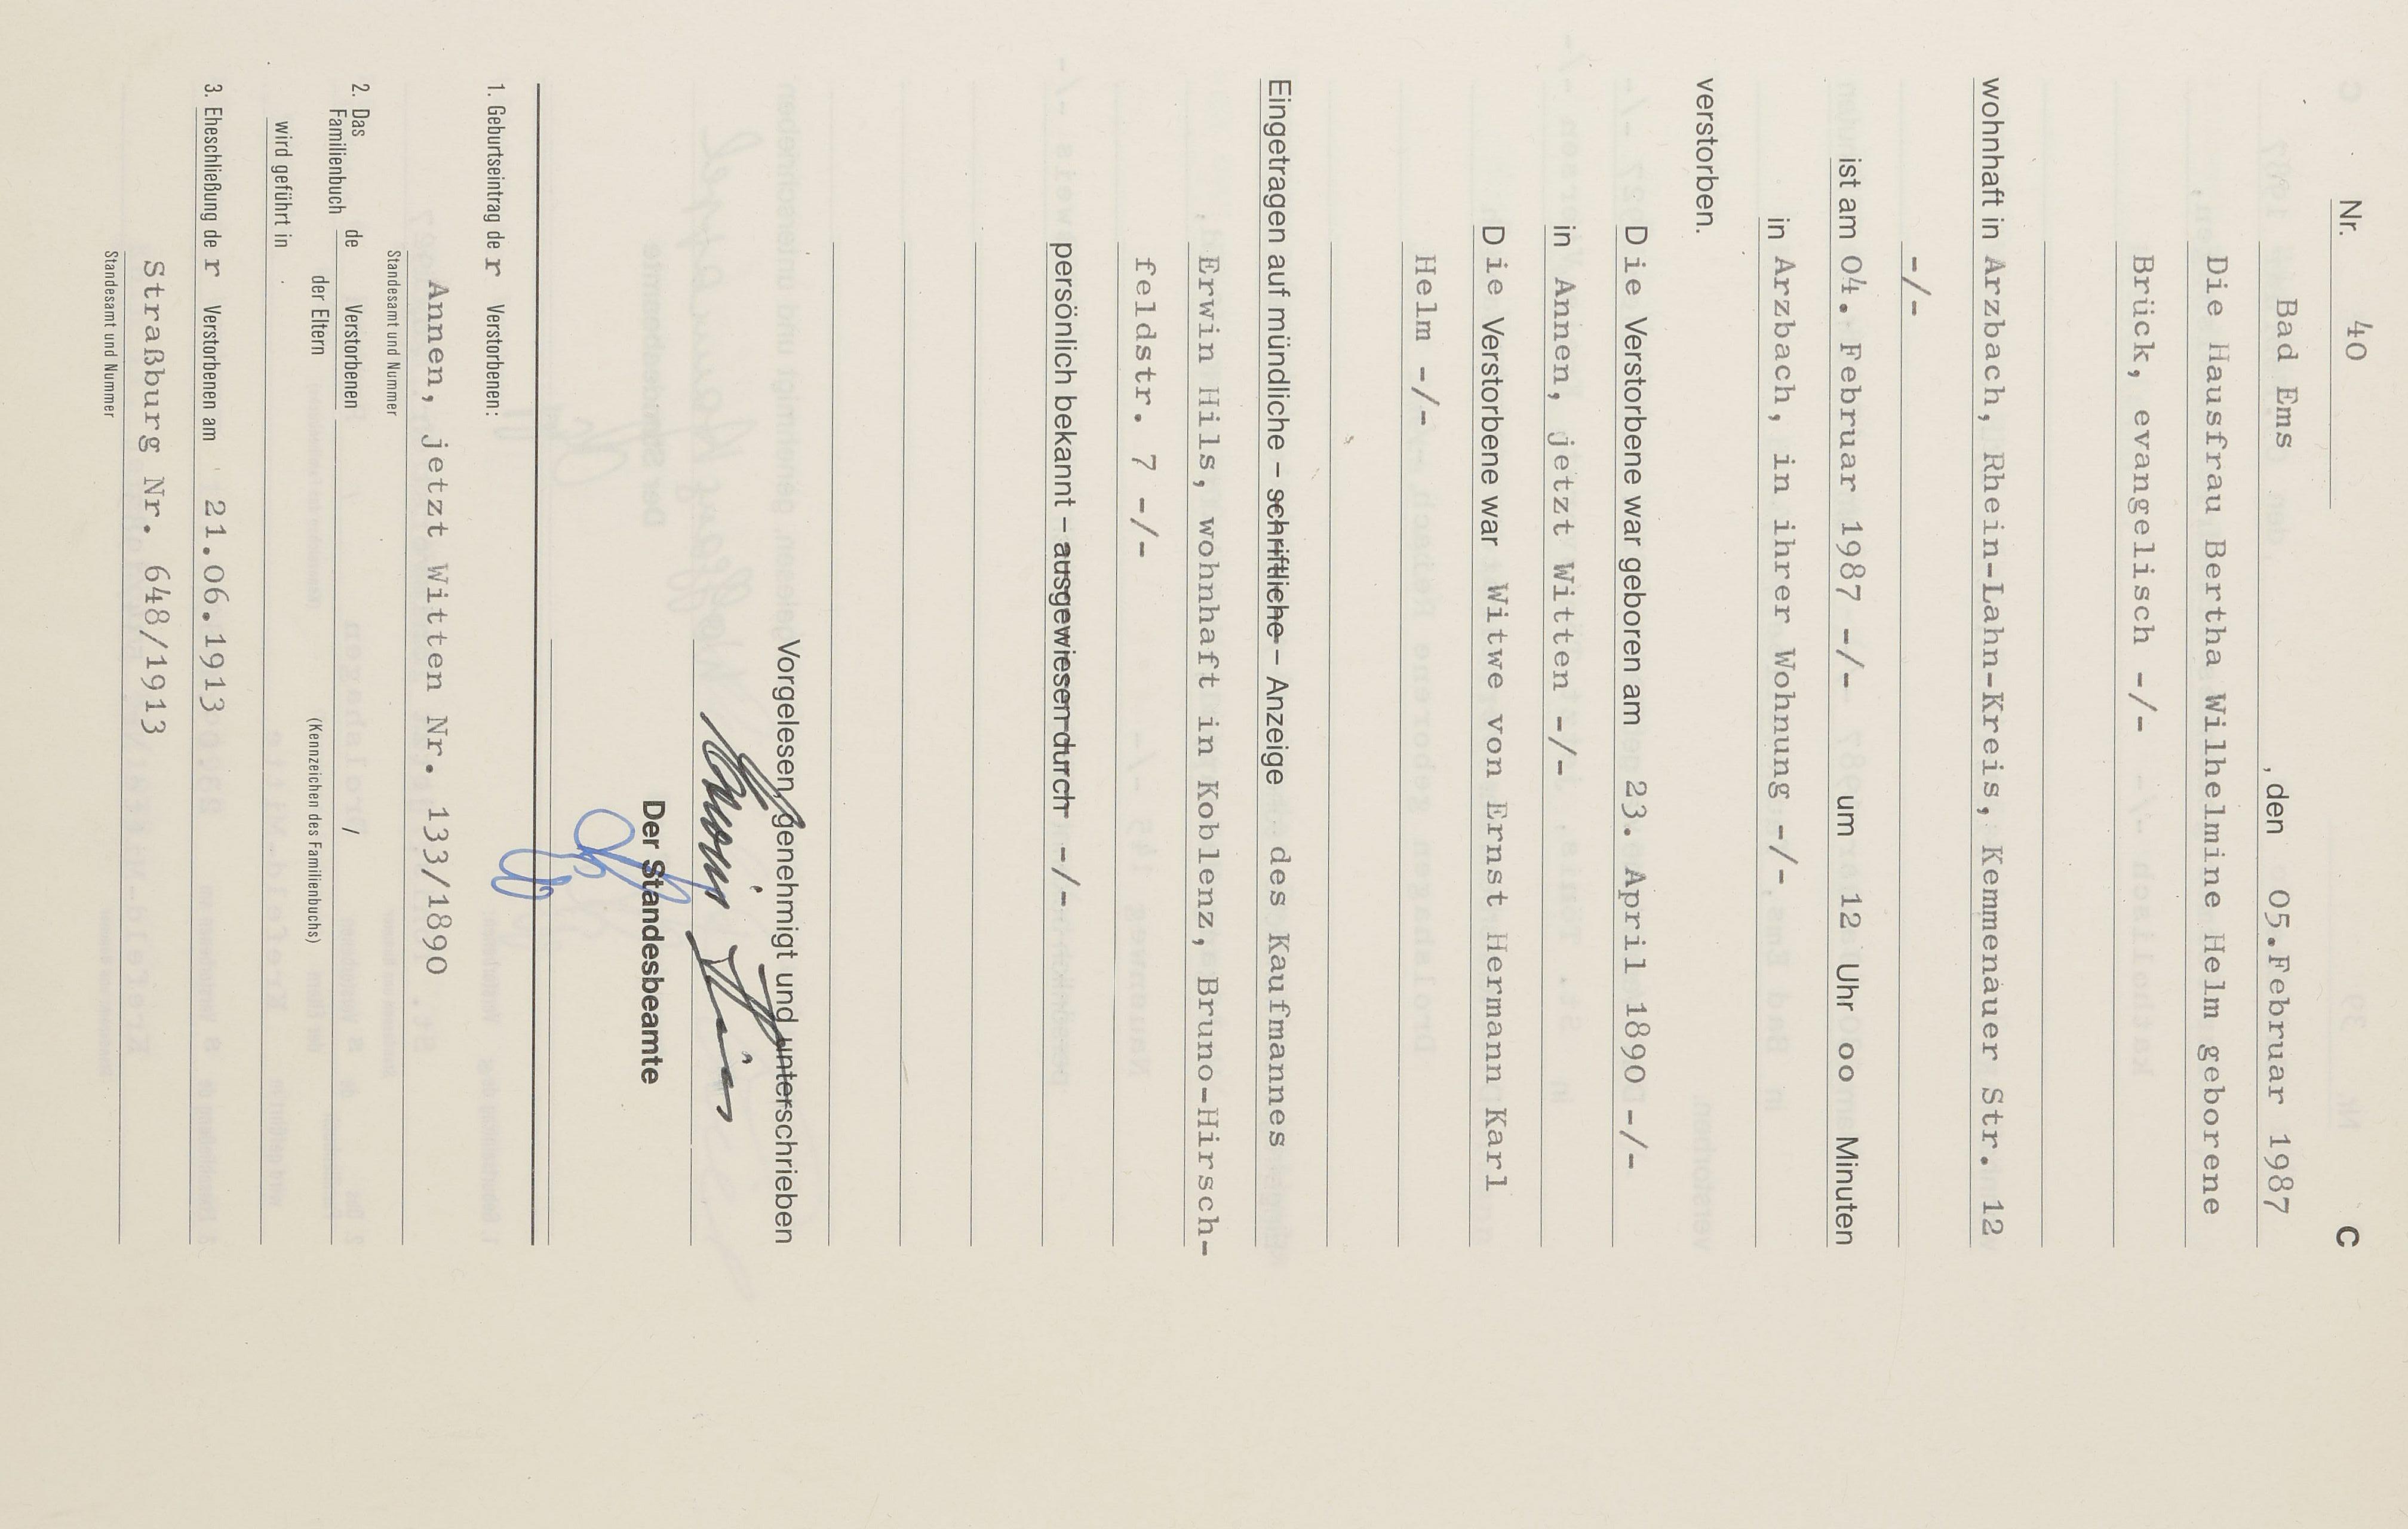 C
Nr. 40
Bad Ems , den 05.Februar 1987
Die Hausfrau Bertha Wilhelmine Helm geborene
Brück, evangelisch -/-
wohnhaft in Arzbach, Rhein-Lahn-Kreis, Kemmenauer Str. 12
-/-
ist am 04. Februar 1987 -/- um 12 Uhr oo Minuten
in Arzbach, in ihrer Wohnung -/-
verstorben.
Die Verstorbene war geboren am 23. April 1890 -/-
in Annen, jetzt Witten -/-
Die Verstorbene war Witwe von Ernst Hermann Karl
Helm -/-
Eingetragen auf mündliche – schriftliche – Anzeige des Kaufmannes
Erwin Hils, wohnhaft in Koblenz, Bruno-Hirsch-
feldstr. 7 -/-
persönlich bekannt – ausgewiesen durch -/-
Vorgelesen, genehmigt und unterschrieben
Erwin Hils
Der Standesbeamte
1. Geburtseintrag der Verstorbenen:
Annen, jetzt Witten Nr. 133/1890
Standesamt und Nummer
2. Das Familienbuch de Verstorbenen /
der Eltern (Kennzeichen des Familienbuchs)
wird geführt in
3. Eheschließung der Verstorbenen am 21.06.1913
Straßburg Nr. 648/1913
Standesamt und Nummer